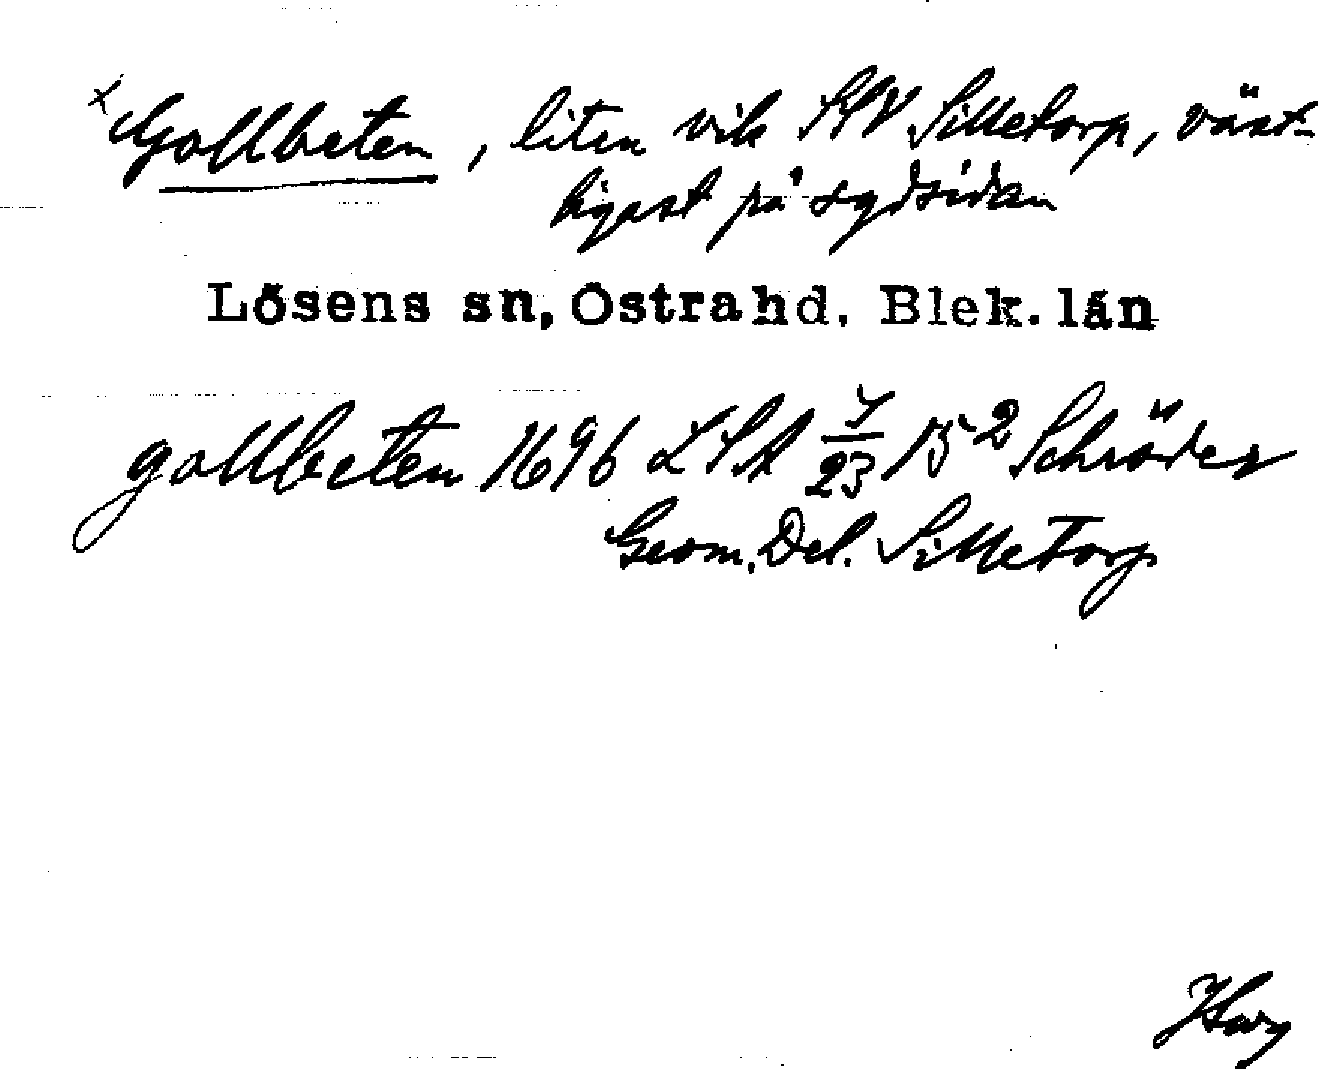 x Gollbeten, liten vik SSV Silletorp, väst-
ligast på sydsidan
Lösens sn, Östra hd. Blek. län
gollbeten 1696 LSA 7/23 15² Schröder
Geom. Del. Silletorp